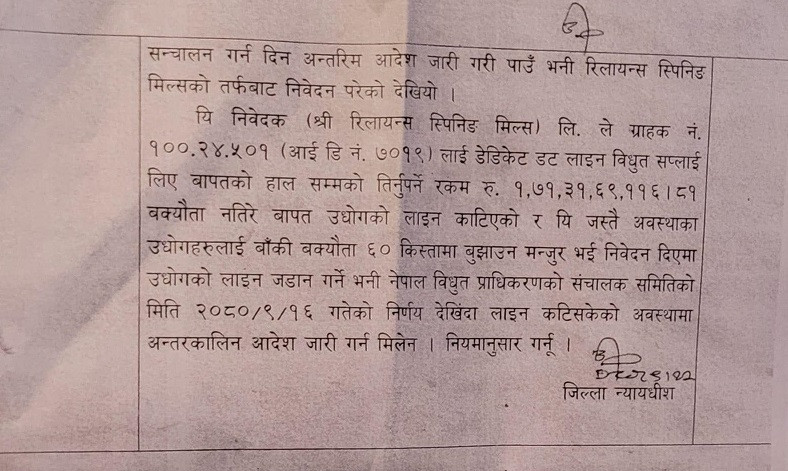 सन्चालन गर्न दिन अन्तरिम आदेश जारी गरी पाउँ भनी रिलायन्स स्पिनिङ
मिल्सको तर्फबाट निवेदन परेको देखियो ।
यि निवेदक (श्री रिलायन्स स्पिनिङ मिल्स) लि. ले ग्राहक नं.
१००.२४.५०१ (आई डि नं. ७०१९) लाई डेडिकेट डट लाइन विधुत सप्लाई
लिए बापतको हाल सम्मको तिर्नुपर्ने रकम रु. १,७१,३१,६९,११६।८१
बक्यौता नतिरे बापत उधोगको लाइन काटिएको र यि जस्तै अवस्थाका
उधोगहरुलाई बाँकी बक्यौता ६० किस्तामा बुझाउन मन्जुर भई निवेदन दिएमा
उधोगको लाइन जडान गर्ने भनी नेपाल विधुत प्राधिकरणको संचालक समितिको
मिति २०८०/९/१६ गतेको निर्णय देखिंदा लाइन कटिसकेको अवस्थामा
अन्तरकालिन आदेश जारी गर्न मिलेन । नियमानुसार गर्नू ।
जिल्ला न्यायधीश